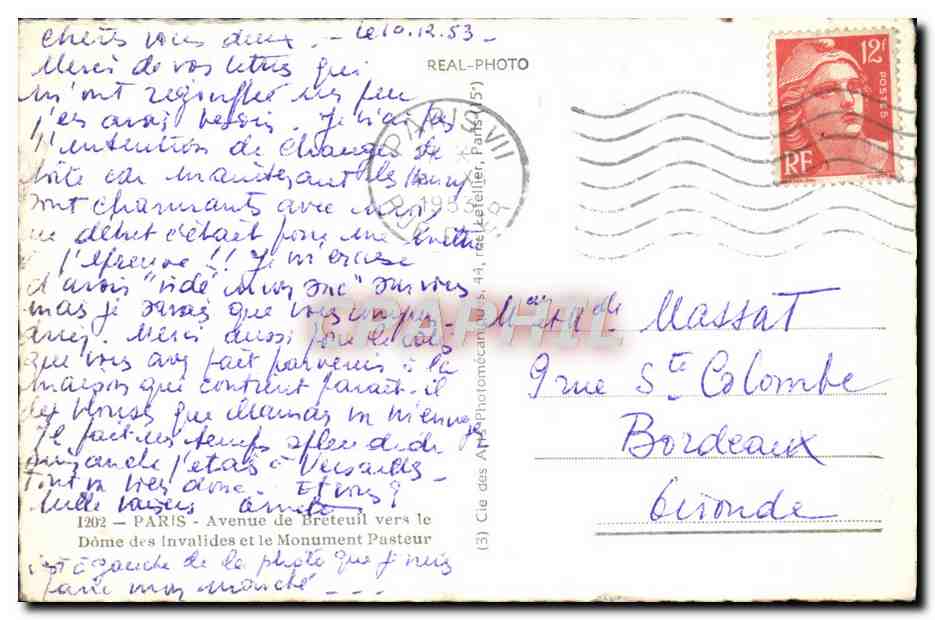 Chers vous deux. - Le 10.12.53 -
Merci de vos lettres qui
m'ont regonflée un peu
j'en avais besoin. Je n'ai pas
l'intention de changer de
boîte car maintenant les
sont charmants avec moi,
ce début c'était pour me mettre
à l'épreuve !! Je m'excuse
d'avoir "vidé mon sac" sur vous
mais je savais que vous
Merci aussi pour le colis
que vous avez fait parvenir à la
maison qui contient paraît-il
des blouses que Maman va m'envoyer
Il fait un temps splendide
dimanche j'étais à Versailles
Tout va bien donc. Et vous ?
Mille baisers
1202 — PARIS - Avenue de Breteuil vers le
Dôme des Invalides et le Monument Pasteur
c'est à gauche de la photo que je vais
faire mon marché - - -
REAL-PHOTO
(3) Cie des Arts Photomécaniques, 44, rue Letellier, Paris (15e)
PARIS VII
1953
12f
POSTES
RF
Massat
9 rue Ste Colombe
Bordeaux
Gironde
CPAPHIL